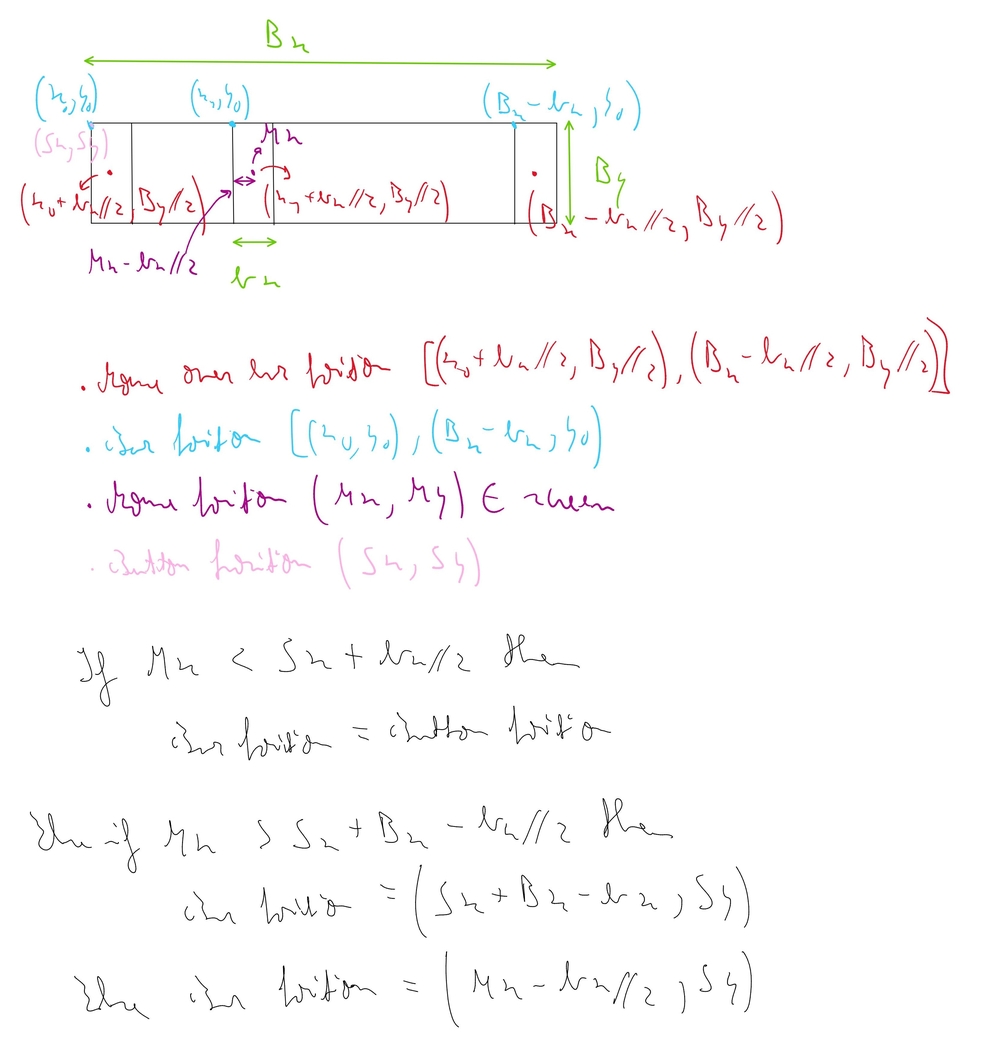 Bx
(x₀, y₀) (x₁, y₀) (Bx - bx, y₀)
(Sx, Sy) Mx
By
(x₀ + bx//2, By//2) (x₁ + bx//2, By//2) (Bx - bx//2, By//2)
Mx - bx//2
bx
. Mouse over bar position [(x₀ + bx//2, By//2), (Bx - bx//2, By//2)]
. Bar position [(x₀, y₀), (Bx - bx, y₀)
. Mouse position (Mx, My) ∈ screen
. Button position (Sx, Sy)
If Mx < Sx + bx//2 then
Bar position = Button position
Else if Mx > Sx + Bx - bx//2 then
Bar position = (Sx + Bx - bx, Sy)
Else Bar position = (Mx - bx//2, Sy)